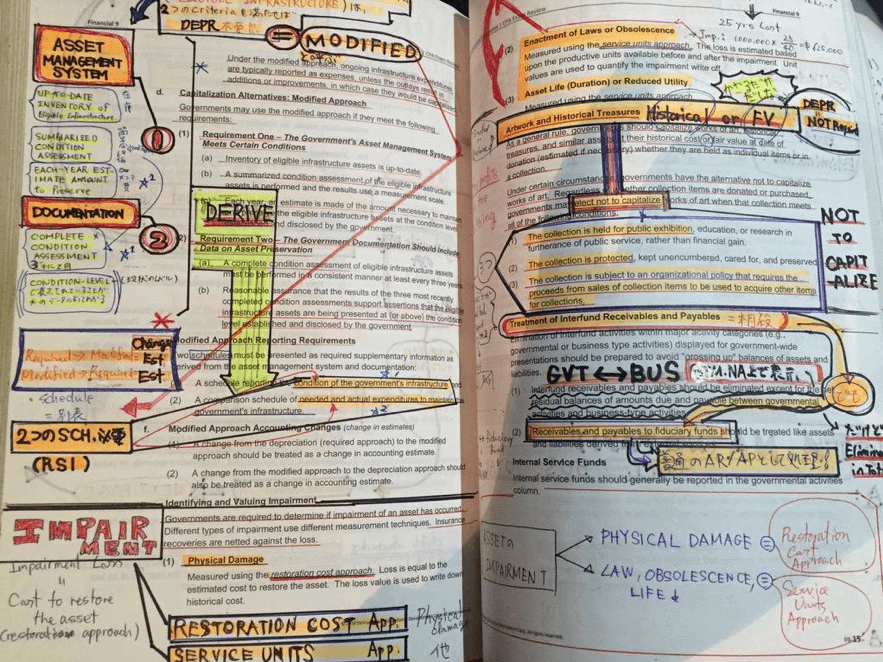 Financial 9
2つのCriteriaを満たせば
DEPR 不要
= MODIFIED
ASSET
MANAGEMENT
SYSTEM
UP-TO-DATE
INVENTORY of
Eligible Infrastructure
SUMMARIZED
CONDITION
ASSESSMENT
EACH-YEAR EST-
IMATE AMOUNT to
Preserve
DOCUMENTATION
COMPLETE
CONDITION
ASSESSMENT
CONDITION-LEVEL
Under the modified approach, ongoing infrastructure expenditures
are typically reported as expenses, unless the outlays result in
additions or improvements, in which case they would be capitalized.
d. Capitalization Alternatives: Modified Approach
Governments may use the modified approach if they meet the following
requirements:
(1) Requirement One – The Government's Asset Management System
Meets Certain Conditions
(a) Inventory of eligible infrastructure assets is up-to-date.
(b) A summarized condition assessment of the eligible infrastructure
assets is performed and the results use a measurement scale.
Each year, estimate is made of the amount necessary to maintain
the eligible infrastructure assets at the condition level
and disclosed by the government.
DERIVE
(2) Requirement Two – The Government Documentation Should Include
Data on Asset Preservation
(a) A complete condition assessment of eligible infrastructure assets
must be performed in a consistent manner at least every three years.
(b) Reasonable assurance that the results of the three most recently
completed condition assessments support assertions that the eligible
infrastructure assets are being presented at (or above) the condition
level established and disclosed by the government.
Change
Required → Modified Est
Modified → Required Est
Modified Approach Reporting Requirements
Two schedules must be presented as required supplementary information as
derived from the asset management system and documentation:
A schedule reporting the condition of the government's infrastructure and
(2) A comparison schedule of needed and actual expenditures to maintain
government's infrastructure.
schedule
= 別表
2つのSCH.必要
(RSI)
f. Modified Approach Accounting Changes (change in estimates)
(1) A change from the depreciation (required approach) to the modified
approach should be treated as a change in accounting estimate.
(2) A change from the modified approach to the depreciation approach should
also be treated as a change in accounting estimate.
Identifying and Valuing Impairment
Governments are required to determine if impairment of an asset has occurred.
Different types of impairment use different measurement techniques. Insurance
recoveries are netted against the loss.
IMPAIR
MENT
(1) Physical Damage
Measured using the restoration cost approach. Loss is equal to the
estimated cost to restore the asset. The loss value is used to write down
historical cost.
Impairment Loss
"
Cost to restore
the asset
(restoration approach)
RESTORATION COST App. — Physical damage
SERVICE UNITS App. 他
Financial 9
25 yrs Cost
(2) Enactment of Laws or Obsolescence
Measured using the service units approach. The loss is estimated based
upon the productive units available before and after the impairment. Unit
values are used to quantify the impairment write off.
(3) Asset Life (Duration) or Reduced Utility
Measured using the service units approach.
Artwork and Historical Treasures
Historical or FV
DEPR
NOT Required
As a general rule, governments should capitalize works of art, historical
treasures, and similar assets at their historical cost or fair value at date of
donation (estimated if necessary) whether they are held as individual items or in
a collection.
Under certain circumstances, governments have the alternative not to capitalize
works of art. Regardless of whether collection items are donated or purchased,
governments may elect not to capitalize works of art when that collection meets
all of the following conditions:
(1) The collection is held for public exhibition, education, or research in
furtherance of public service, rather than financial gain.
(2) The collection is protected, kept unencumbered, cared for, and preserved.
(3) The collection is subject to an organizational policy that requires the
proceeds from sales of collection items to be used to acquire other items
for collections.
NOT
TO
CAPIT
-ALIZE
Treatment of Interfund Receivables and Payables = 相殺
Elimination of interfund activities within major activity categories (e.g.,
governmental or business type activities) displayed for government-wide
presentations should be prepared to avoid "grossing up" balances of assets and
liabilities.
GVT ↔ BUS
(1) Interfund receivables and payables should be eliminated except for the net
residual balances of amounts due and payable between governmental
activities and business-type activities.
(2) Receivables and payables to fiduciary funds should be treated like assets
and liabilities derived
普通のAR/APとして処理!
Eliminate
in Total
Internal Service Funds
Internal service funds should generally be reported in the governmental activities
column.
ASSETの
IMPAIRMENT
PHYSICAL DAMAGE =
Restoration
Cost
Approach
LAW, OBSOLESCENCE,
LIFE ↓ =
Service
Units
Approach